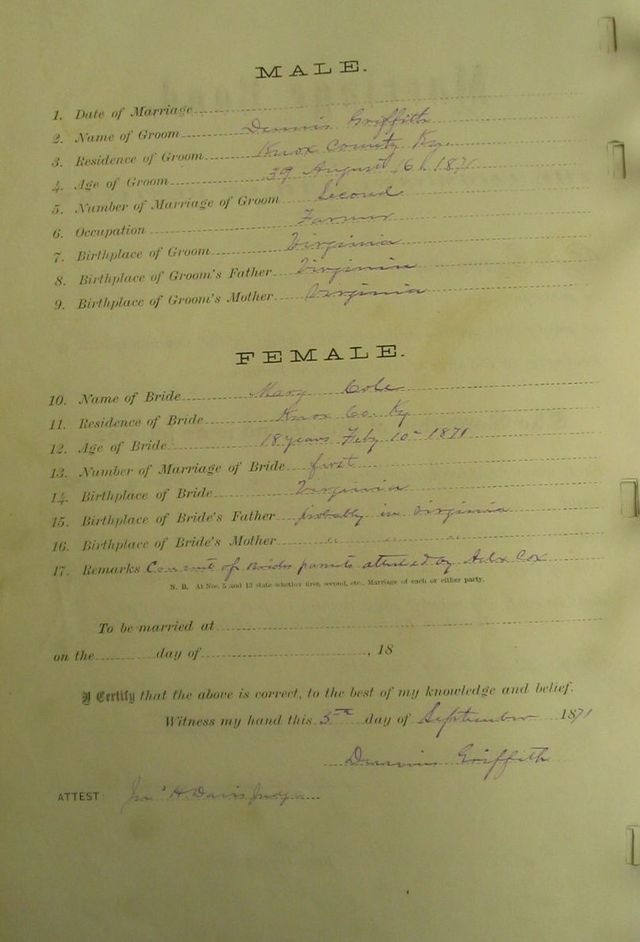 MALE.
1. Date of Marriage
2. Name of Groom Dennis Griffith
3. Residence of Groom Knox County Ky.
4. Age of Groom 39 August 6, 1871
5. Number of Marriage of Groom Second
6. Occupation Farmer
7. Birthplace of Groom Virginia
8. Birthplace of Groom's Father Virginia
9. Birthplace of Groom's Mother Virginia
FEMALE.
10. Name of Bride Mary Cole
11. Residence of Bride Knox Co. Ky
12. Age of Bride 18 years Feby 10th 1871
13. Number of Marriage of Bride first
14. Birthplace of Bride Virginia
15. Birthplace of Bride's Father probably in Virginia
16. Birthplace of Bride's Mother " " "
17. Remarks Consent of Brides parents attested by Cox
N. B. At Nos. 5 and 13 state whether first, second, etc., Marriage of each or either party.
To be married at
on the day of , 18
I Certify that the above is correct, to the best of my knowledge and belief.
Witness my hand this 5th day of September 1871
Dennis Griffith
ATTEST: Jno H Davis Judge